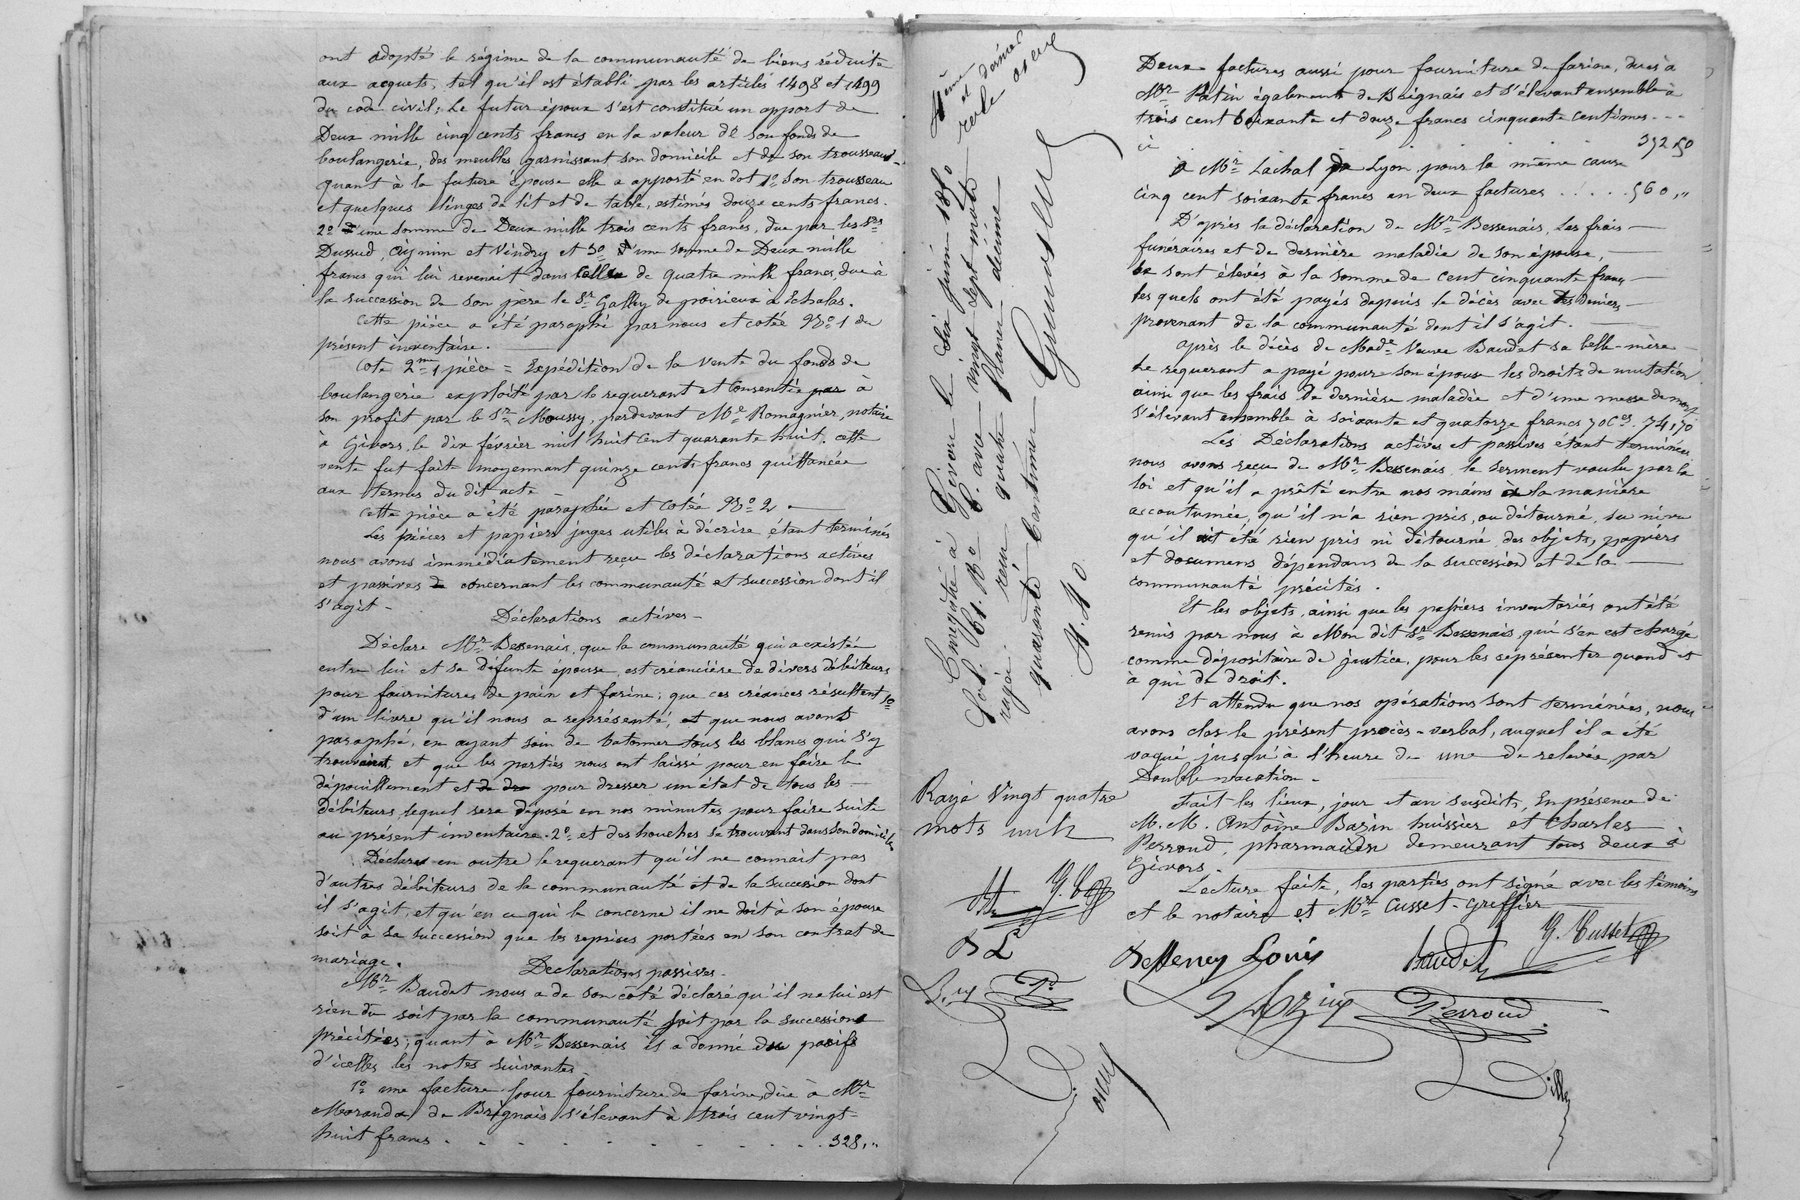 ont adopté le régime de la communauté de biens réduite
aux acquets, tel qu'il est établi par les articles 1498 et 1499
du code civil; Le futur époux s'est constitué un apport de
Deux mille cinq cents francs en la valeur de son fonds de
boulangerie, des meubles garnissant son domicile et de son trousseau,
quant à la future épouse elle a apporté en dot 1º Son trousseau
et quelques linges de lit et de table, estimés douze cents francs.
2º D'une somme de Deux mille trois cents francs, due par les Srs
Dussud, Aignin et Vindry et 3º D'une somme de Deux mille
francs qui lui revenait dans celle de quatre mille francs, due à
la succession de son père le Sr Gally de poirieux à Echalas.
Cette pièce a été paraphé par nous et cotée Nº 1 du
présent inventaire.
Cote 2me 1 pièce = Expédition de la vente du fonds de
boulangerie exploité par le requerant et consentie par à
son profit par le Sr Moussy, pardevant Me Romagnier, notaire
à Givors, le dix février mil huit cent quarante huit. Cette
vente fut faite moyennant quinze cents francs quittancée
aux termes du dit acte _
Cette pièce a été paraphée et cotée Nº 2.
Les pièces et papiers jugés utiles à décrire, étant terminés
nous avons immédiatement reçu les déclarations actives
et passives concernant les communauté et succession dont il
s'agit -
Déclarations actives -
Déclare Mr Bessenais, que la communauté qui a existée
entre lui et sa défunte épouse, est créancière de divers débiteurs
pour fournitures de pain et farine; que ces créances résultent 1º
d'un livre qu'il nous a représenté, et que nous avons
paraphé, en ayant soin de batonner tous les blancs qui s'y
trouvaient et que les parties nous ont laissé pour en faire le
dépouillement et de de pour dresser un état de tous les
débiteurs, lequel sera déposé en nos minutes pour faire suite
au présent inventaire. 2º et des houches se trouvant dans son domicile
Déclare en outre le requerant qu'il ne connait pas
d'autres débiteurs de la communauté et de la succession dont
il s'agit, et qu'en ce qui le concerne il ne doit à son épouse
soit à sa succession que les reprises portées en son contrat de
mariage.
Déclarations passives -
Mr Baudet nous a de son côté déclaré qu'il ne lui est
rien du soit par la communauté soit par la succession
précitées; quant à Mr Bessenais il a donné du passif
d'icelles les notes suivantes
1º une facture pour fourniture de farine, due à Mr
Morandas de Brignais s'élevant à trois cent vingt-
huit francs . . . . . . . . . . . 328,"
4ème et dernier
role
Enregistré à Givors le dix juin 1850
fol. 61. Rº C. avec vingt sept mots
rayés. reçu quatre francs décime
quarante centimes
4.40
Rayé vingt quatre
mots nuls
G. C
B L
Deux factures aussi pour fourniture de farine, dues à
Mr Patin également de Brignais et s'élevant ensemble à
trois cent soixante et douze francs cinquante centimes - - -
ci 372 50
à Mr Lachal de Lyon, pour la même cause
cinq cent soixante francs en deux factures . . . . . 560,"
D'après la déclaration de Mr Bessenais, les frais
funéraires et de dernière maladie de son épouse,
se sont élevés à la somme de cent cinquante francs
lesquels ont été payés depuis le décès avec des deniers
provenant de la communauté dont il s'agit.
Après le décès de Made Veuve Baudet sa belle-mère
Le réquerant a payé pour son épouse les droits de mutation
ainsi que les frais de dernière maladie et d'une messe de mort
s'élevant ensemble à soixante et quatorze francs 70 Ces. 74,70
Les Déclarations actives et passives étant terminées
nous avons reçu de Mr Bessenais le serment voulu par la
loi et qu'il a prêté entre nos mains à la manière
accoutumée, qu'il n'a rien pris, ou détourné, su ni vu
qu'il ait été rien pris ni détourné, des objets, papiers
et documens dépendans de la succession et de la
communauté précités.
Et les objets, ainsi que les papiers inventoriés ont été
remis par nous à Mon dit Sr Bessenais, qui s'en est chargé
comme dépositaire de justice, pour les représenter quand et
à qui de droit.
Et attendu que nos opérations sont terminées, nous
avons clos le présent procès-verbal, auquel il a été
vaqué jusqu'à l'heure de une de relevée, par
Double vacation -
Fait les lieux, jour et an susdits, En présence de
M.M. Antoine Bazin huissier et Charles
Perroud, pharmacien demeurant tous deux à
Givors.
Lecture faite, les parties ont signé avec les témoins
et le notaire et Mr Cusset-Greffier
Bessenay Louis Baudet G. Cusset
Bazin Perroud